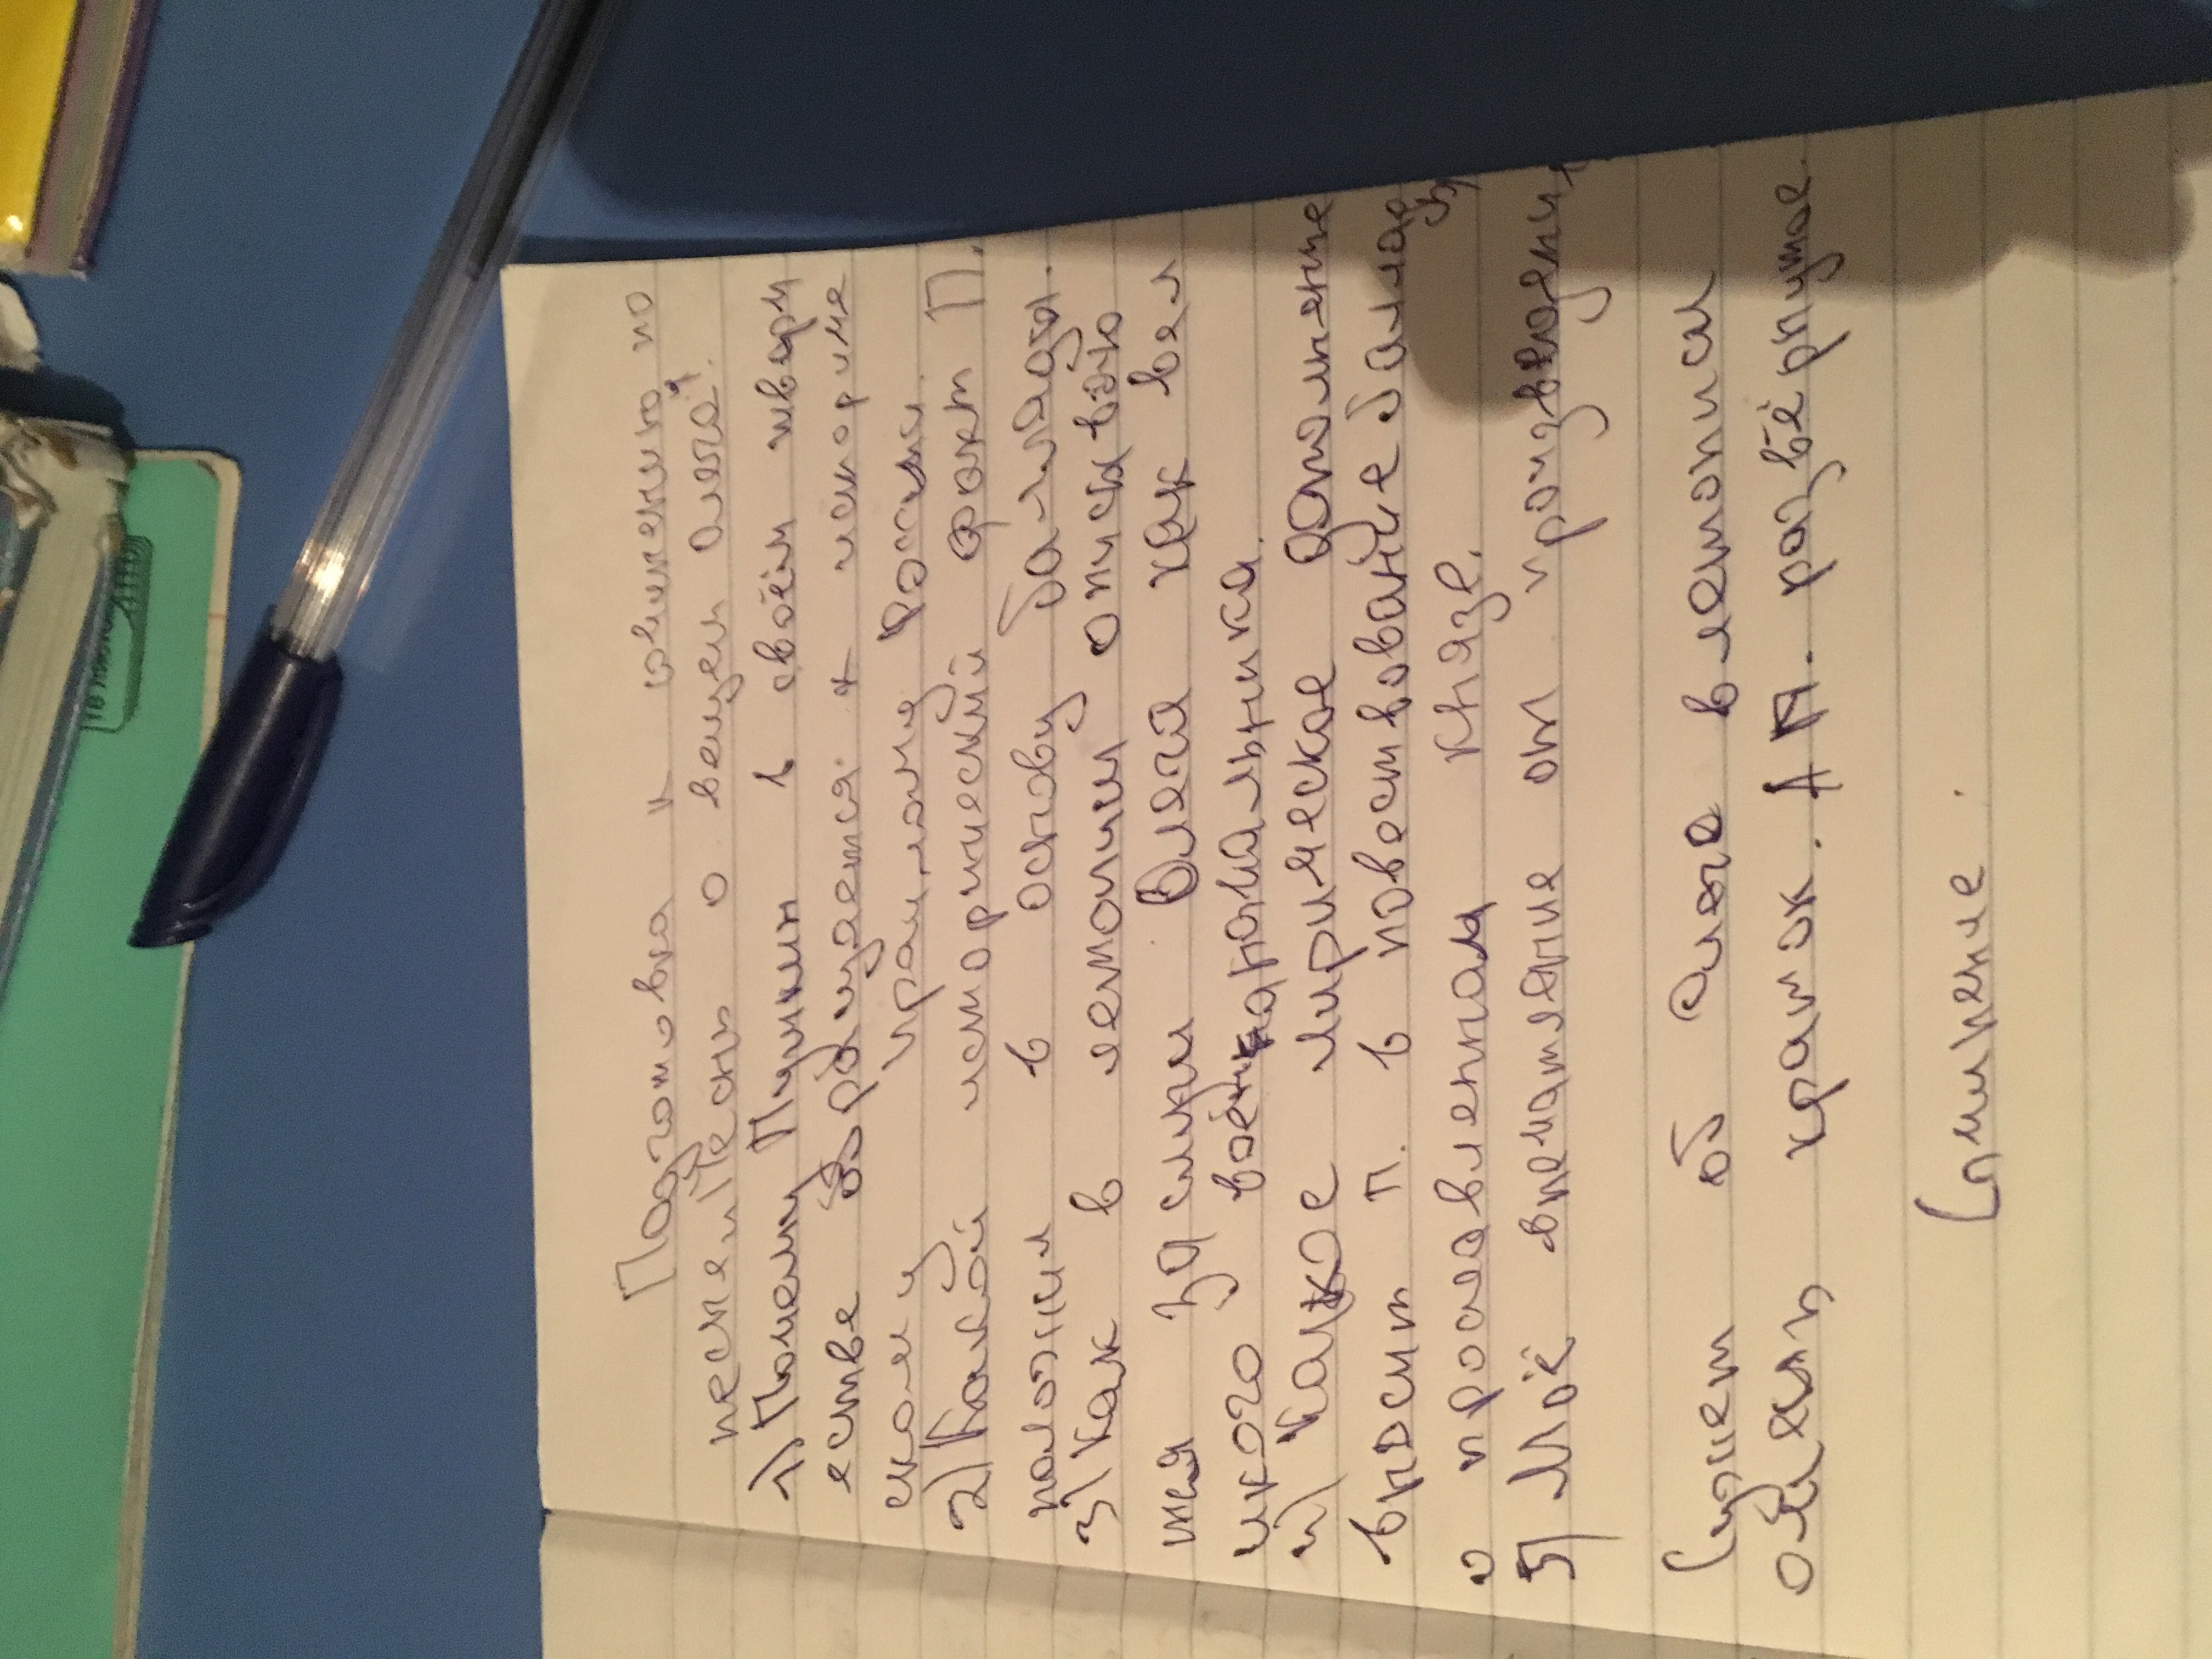 Подготовка к сочинению по
песне
о вещем олеге.
1) Почему Пушкин в своём творч
естве обращается к историче
скому прошлому России.
2) Какой исторический факт П.
положил в основу баллады.
3) Как в летописи описывают
ся Олег как вел
икого военначальника.
4) Какое лирическое дополнение
вносит п. в повествование баллады
о прославленном князе.
5) Моё впечатление от произведения
Сюжет об Олеге в летописи
очень краток. А П. развёрнутое.